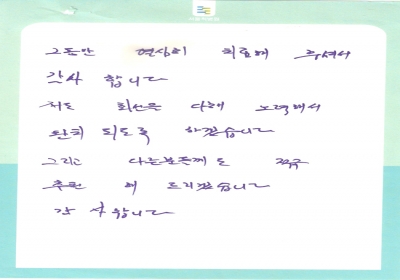 그동안 열심히 치료해 주셔서
감사 합니다
저도 최선을 다해 노력해서
완치 되도록 하겠습니다
그리고 다른분들께도 꼭
추천 해 드리겠습니다
감사합니다